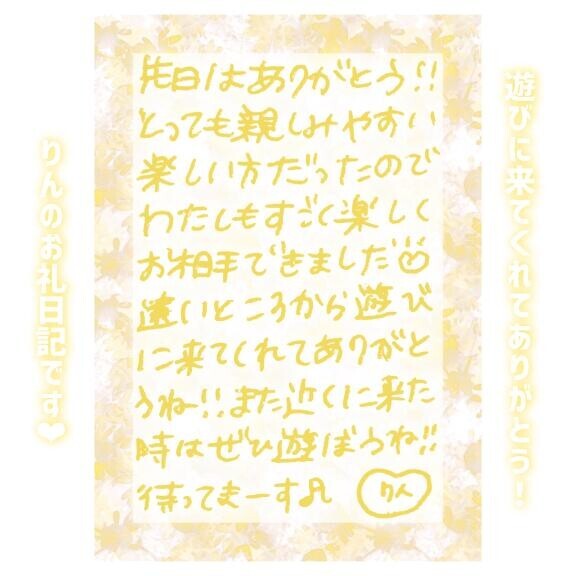 遊びに来てくれてありがとう!
先日はありがとう!!
とっても親しみやすい
楽しい方だったので
わたしもすごく楽しく
お相手できました
遠いところから遊び
に来てくれてありがと
うね!!また近くに来た
時はぜひ遊ぼうね!!
待ってまーす♪
りん
りんのお礼日記です❤